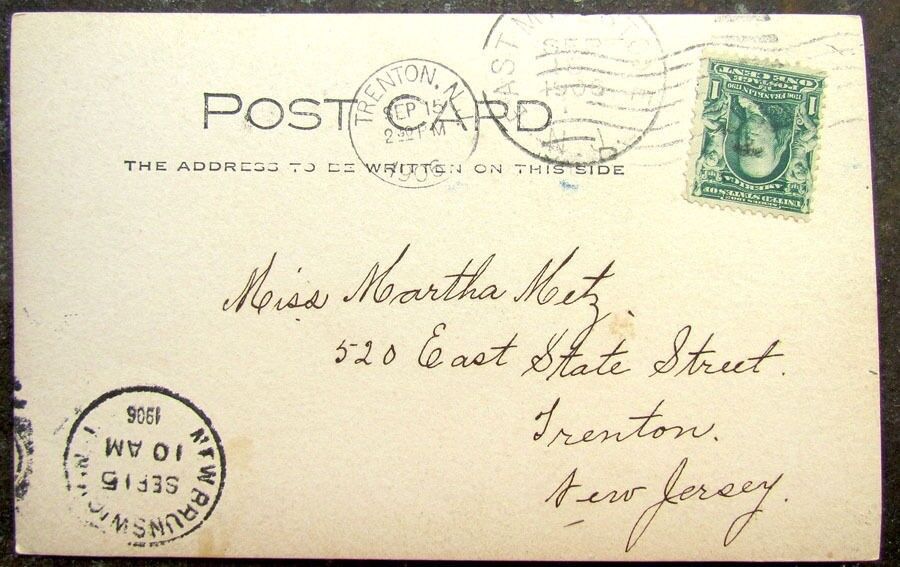 POST CARD
THE ADDRESS TO BE WRITTEN ON THIS SIDE
TRENTON, N.J.
SEP 15
2 30 PM
1906
SEP
N.J.
ONE CENT
POSTAGE
1706 FRANKLIN 1790
1 1
SERIES 1902
UNITED STATES OF
AMERICA
Miss Martha Metz.
520 East State Street.
Trenton.
New Jersey.
NEW BRUNSWICK, N.J.
SEP 15
10 AM
1906